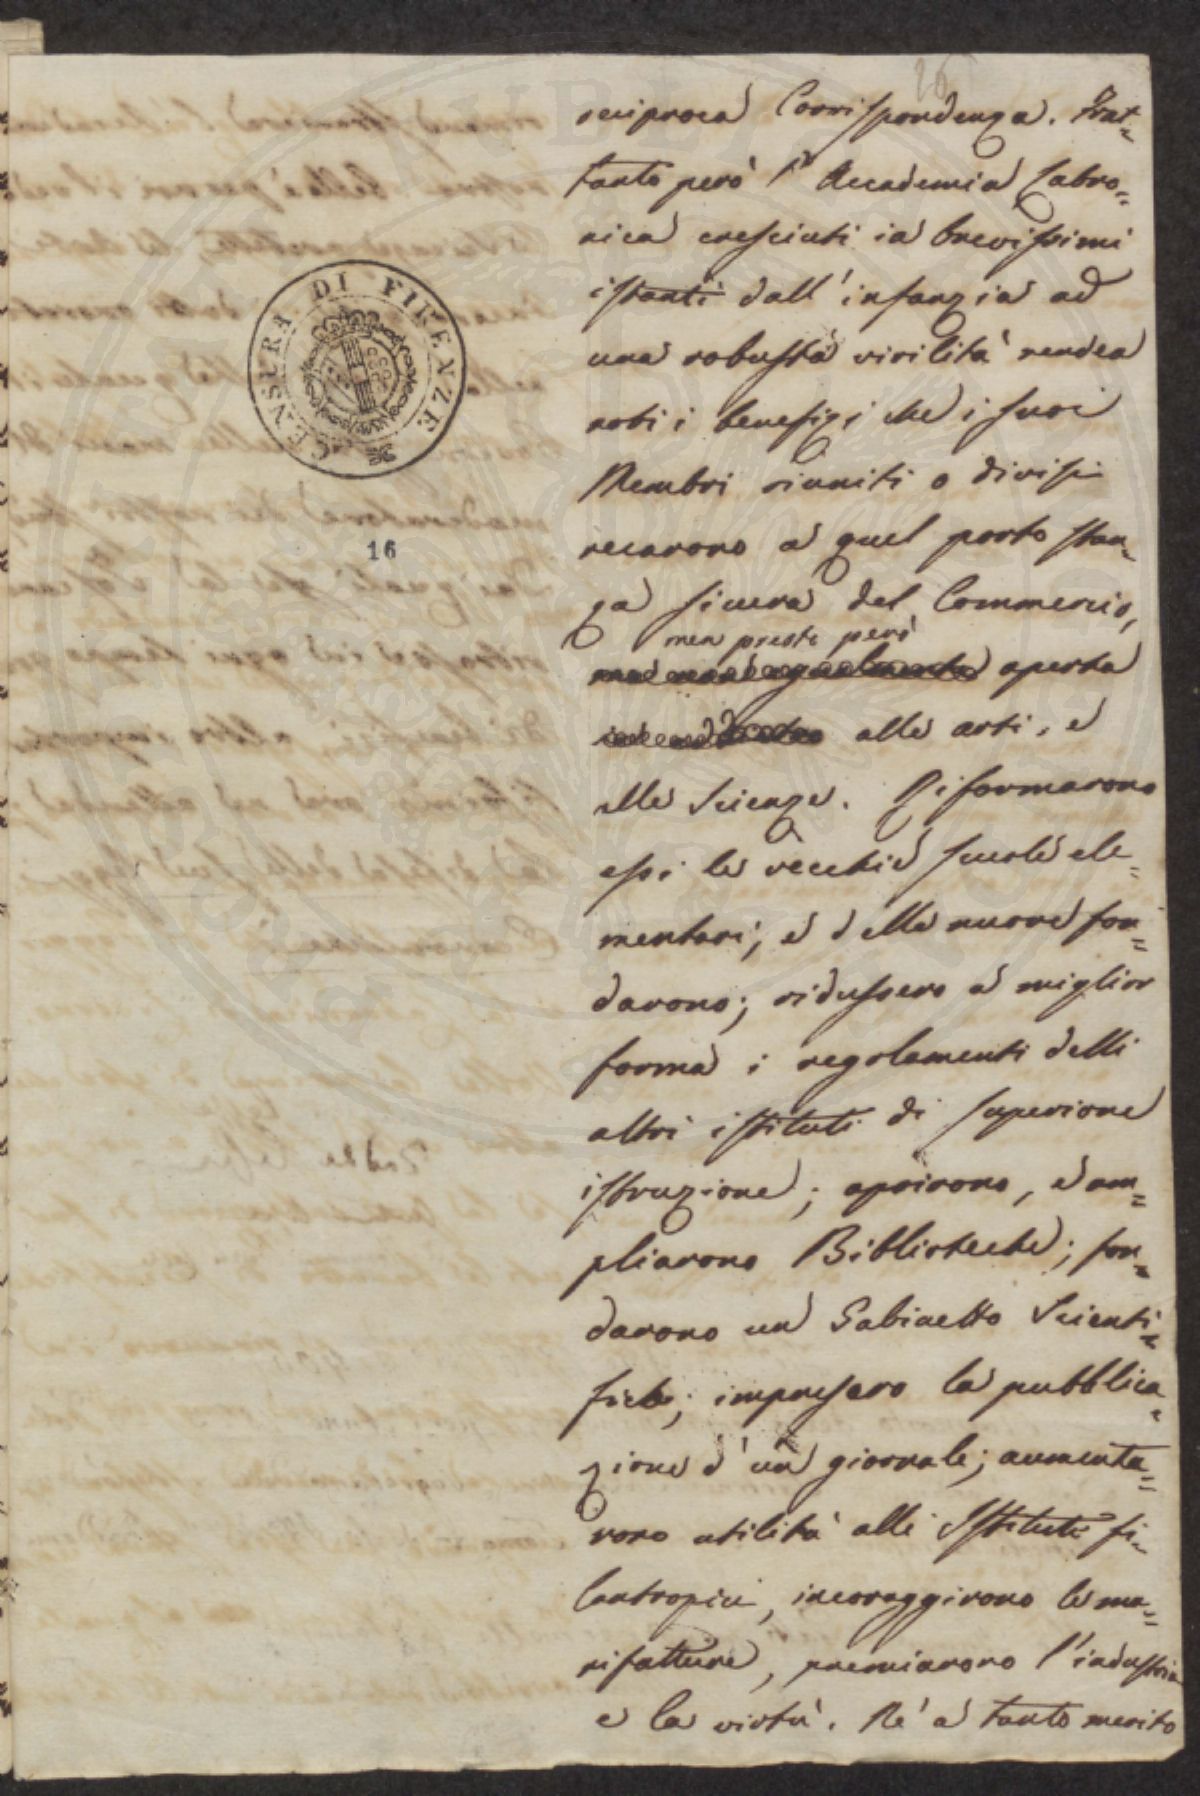 reciproca Corrispondenza. Frat=
tanto però l'Accademia Labro=
nica cresciuti in brevissimi
istanti dall'infanzia ad
una robusta virilità rendea
noti i benefizi che i suoi
Membri riuniti o divisi
recarono a quel porto stan=
za sicura del Commercio,
men presta però
aperta
alle arti, e
alle Scienze. Riformarono
essi le vecchie scuole ele=
mentari; e delle nuove fon=
darono; ridussero a miglior
forma i regolamenti delli
altri istituti di superiore
istruzione; aprirono, ed am=
pliarono Biblioteche; fon=
darono un Gabinetto Scienti=
fico; impresero la pubblica=
zione d'un giornale; aumenta=
rono utilità alli Istituti fi=
lantropici, incoraggirono le ma=
nifatture, premiarono l'industria
e la virtù. Né a tanto merito
CENSURA DI FIRENZE
16